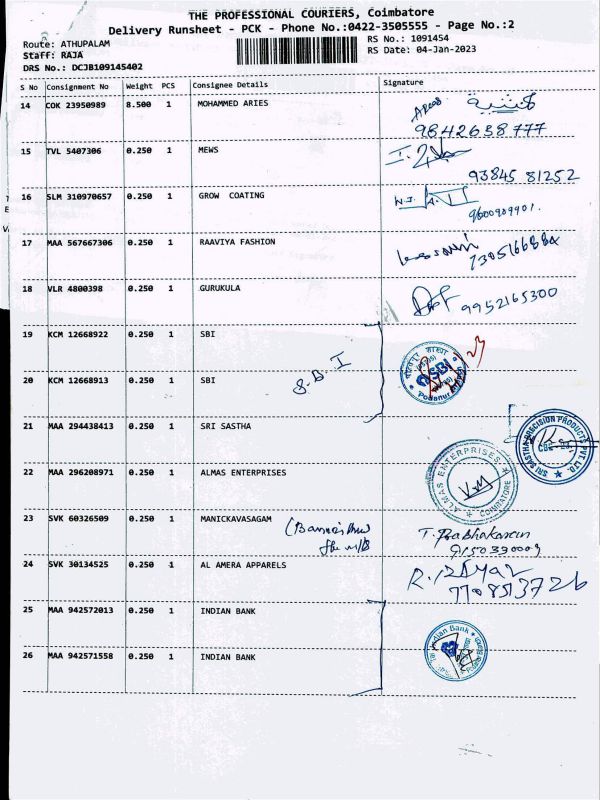 THE PROFESSIONAL COURIERS, Coimbatore
Delivery Runsheet - PCK - Phone No.:0422-3505555 - Page No.:2
Route: ATHUPALAM
RS No.: 1091454
Staff: RAJA
RS Date: 04-Jan-2023
DRS No.: DCJB109145402
S No Consignment No Weight PCS Consignee Details Signature
14 COK 23950989 8.500 1 MOHAMMED ARIES
9842638777
15 TVL 5407306 0.250 1 MEWS
93845 81252
16 SLM 310970657 0.250 1 GROW COATING
9600909901.
17 MAA 567667306 0.250 1 RAAVIYA FASHION
18 VLR 4800398 0.250 1 GURUKULA
9952165300
19 KCM 12668922 0.250 1 SBI
S.B.I
SBI
20 KCM 12668913 0.250 1 SBI
21 MAA 294438413 0.250 1 SRI SASTHA
SRI SASTHA PRECISION PRODUCTS PVT LTD.
22 MAA 296208971 0.250 1 ALMAS ENTERPRISES
ALMAS ENTERPRISES
COIMBATORE
23 SVK 60326509 0.250 1 MANICKAVASAGAM
T. Prabhakaran
9150390009
24 SVK 30134525 0.250 1 AL AMERA APPARELS
7708513726
25 MAA 942572013 0.250 1 INDIAN BANK
Indian Bank
26 MAA 942571558 0.250 1 INDIAN BANK